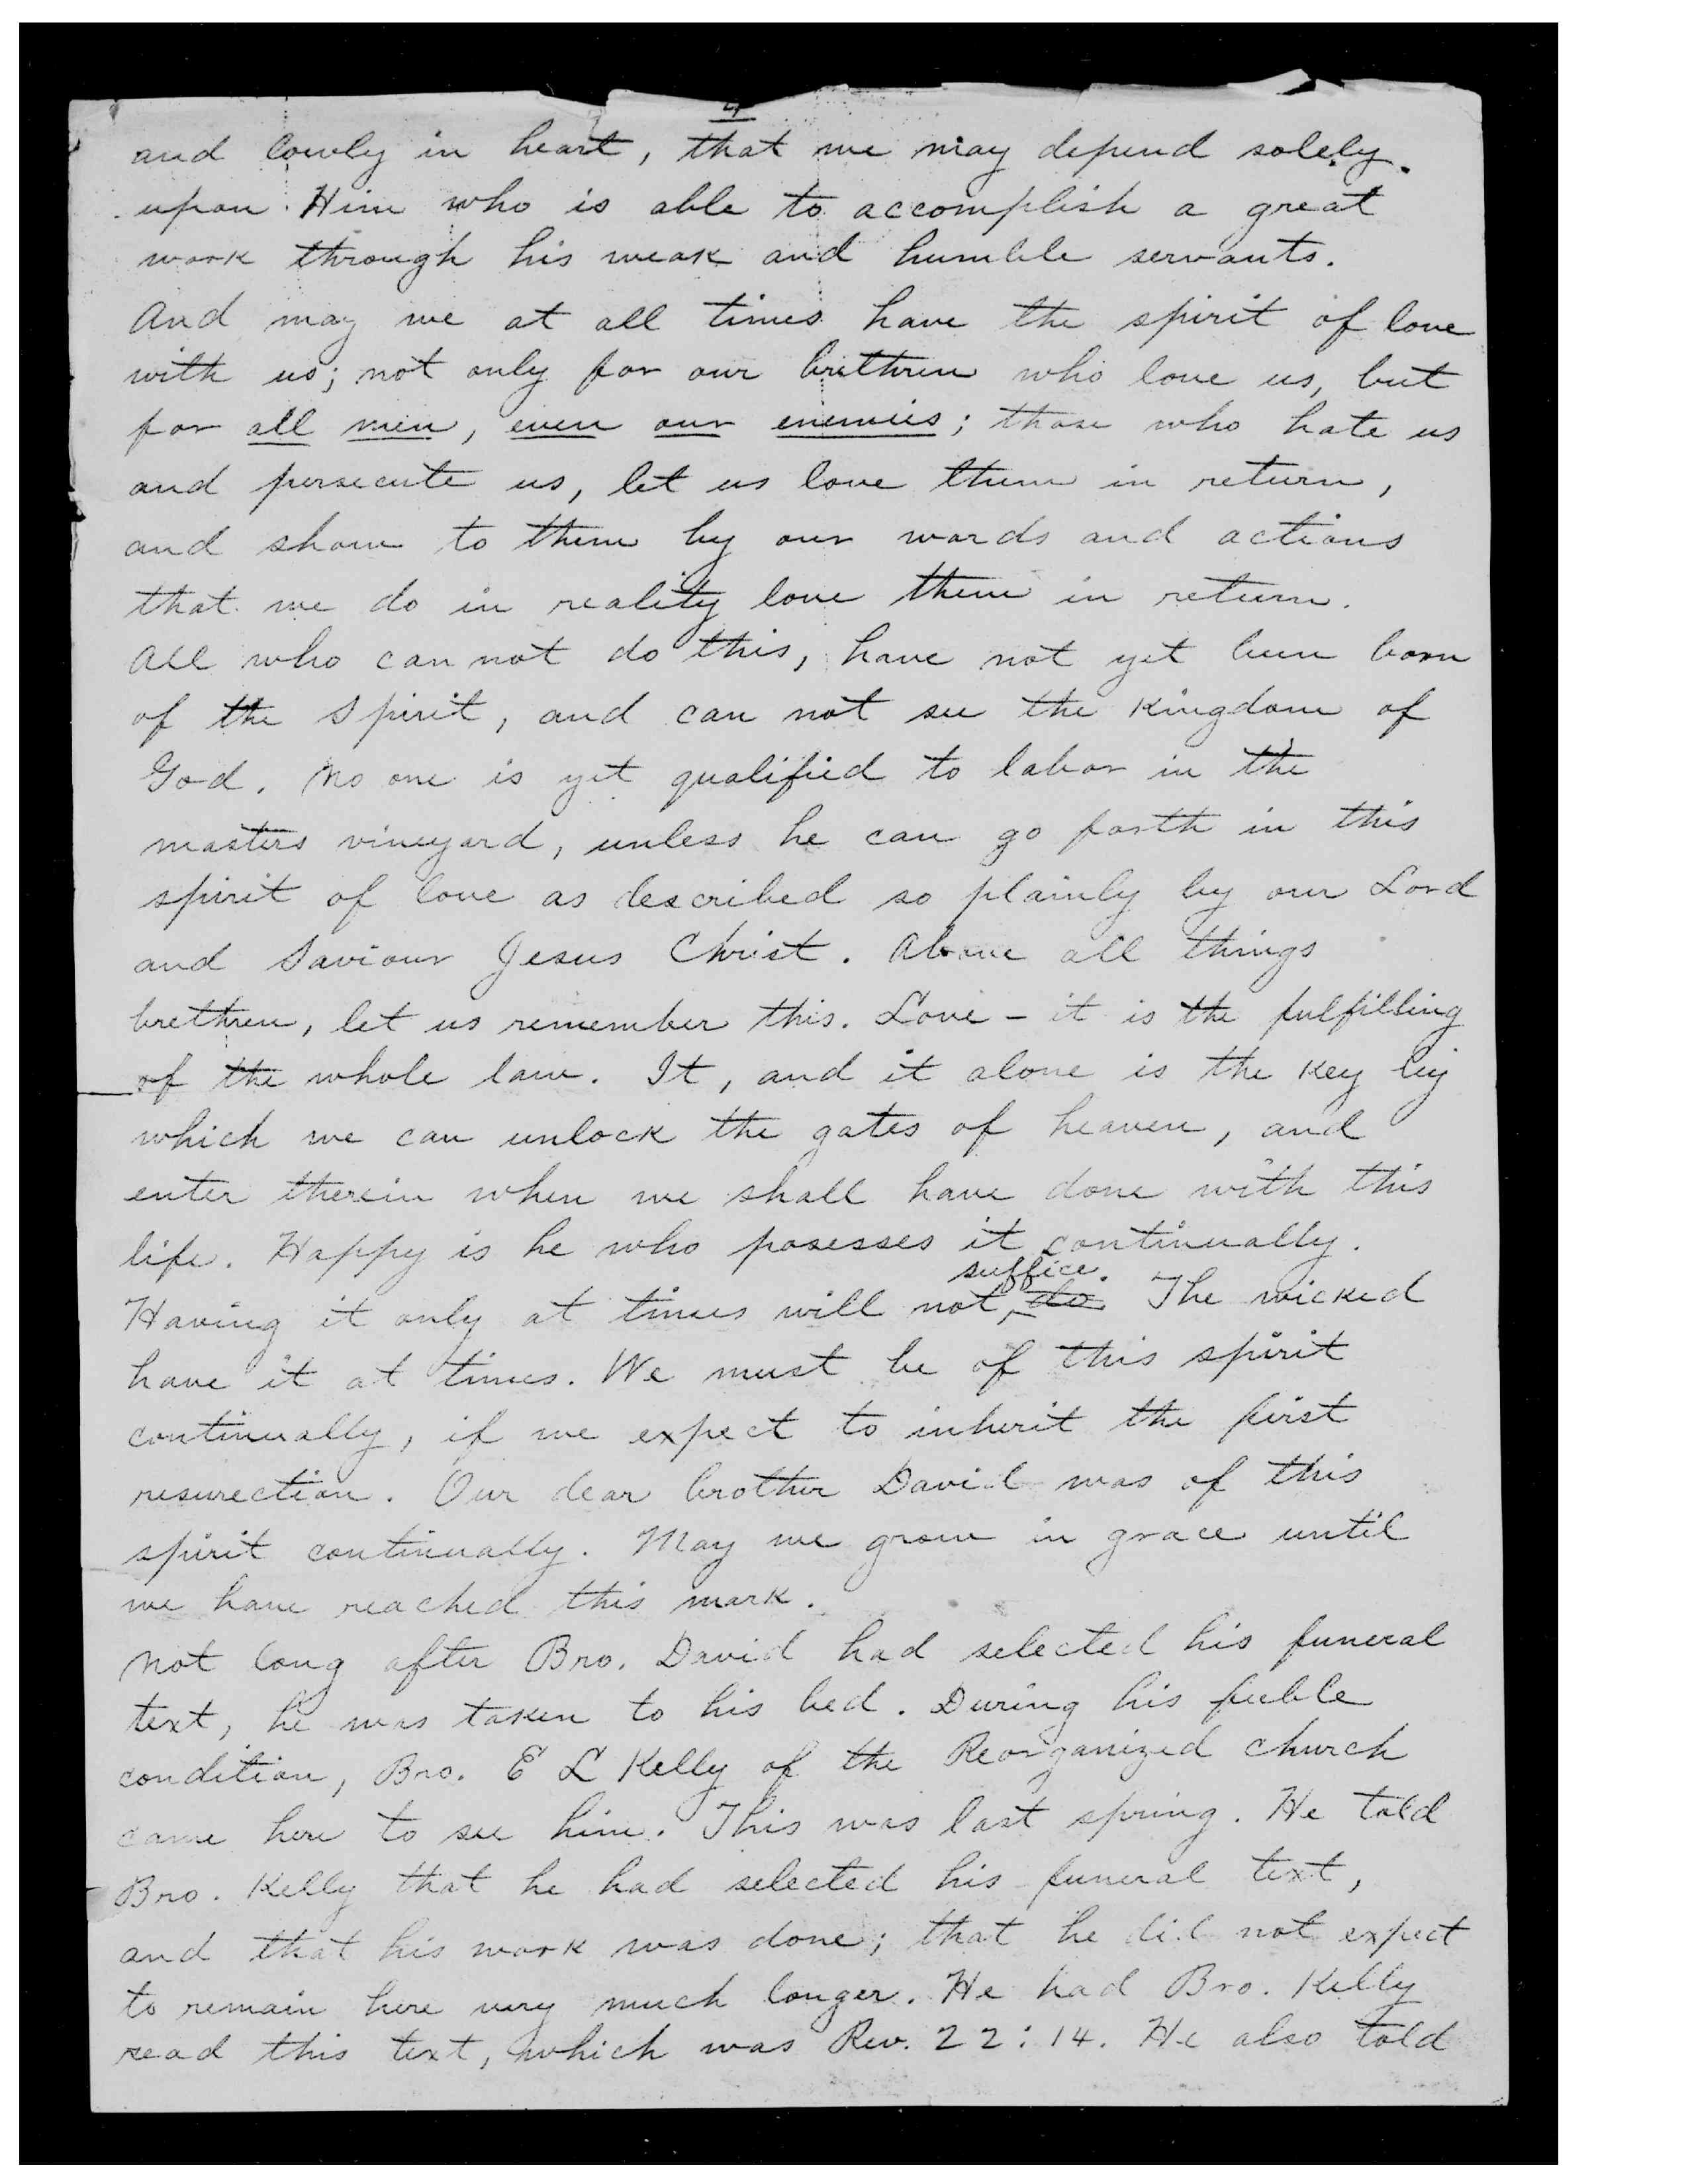 4
and lowly in heart, that we may depend solely
upon Him who is able to accomplish a great
work through his weak and humble servants.
And may we at all times have the spirit of love
with us; not only for our brethren who love us, but
for all men, even our enemies; those who hate us
and persecute us, let us love them in return,
and show to them by our words and actions
that we do in reality love them in return.
All who can not do this, have not yet been born
of the Spirit, and can not see the Kingdom of
God. No one is yet qualified to labor in the
masters vineyard, unless he can go forth in this
spirit of love as described so plainly by our Lord
and Saviour Jesus Christ. Above all things
brethren, let us remember this. Love - it is the fulfilling
of the whole law. It, and it alone is the key by
which we can unlock the gates of heaven, and
enter therein when we shall have done with this
life. Happy is he who posesses it continually.
suffice.
Having it only at times will not do. The wicked
have it at times. We must be of this spirit
continually, if we expect to inherit the first
resurection. Our dear brother David was of this
spirit continually. May we grow in grace until
we have reached this mark.
Not long after Bro. David had selected his funeral
text, he was taken to his bed. During his feeble
condition, Bro. E L Kelly of the Reorganized church
came here to see him. This was last spring. He told
Bro. Kelly that he had selected his funeral text,
and that his work was done; that he did not expect
to remain here very much longer. He had Bro. Kelly
read this text, which was Rev. 22:14. He also told